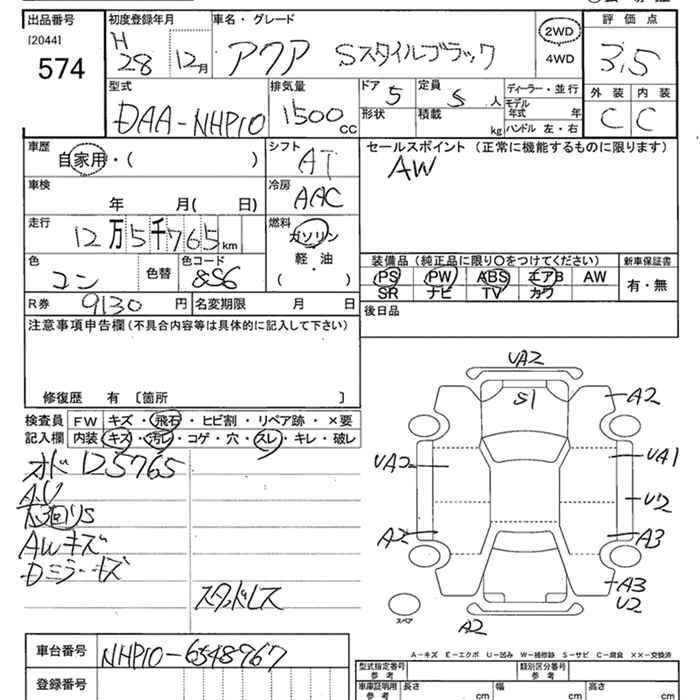 出品番号 初度登録年月 車名・グレード 評価点
[2044]
574
H 28 12月
アクア Sスタイルブラック
2WD
4WD
3.5
外装 内装
C C
型式 排気量 ドア 定員 ディーラー・並行
DAA-NHP10 1500 CC 5 5 人
モデル年式 年
形状 積載 kg ハンドル 左・右
車歴 シフト セールスポイント (正常に機能するものに限ります)
自家用・( ) AT AW
車検 冷房
年 月( 日) AAC
走行 燃料
12万5千765 km ガソリン
軽・油
( )
色 色替 色コード
コン 8S6
装備品(純正品に限り○をつけてください) 新車保証書
PS PW ABS エアB AW 有・無
SR ナビ TV カワ
R券 9130 円 名変期限 月 日
後日品
注意事項申告欄(不具合内容等は具体的に記入して下さい)
修復歴 有 〔箇所 〕
検査員 FW キズ・飛石・ヒビ割・リペア跡・×要
記入欄 内装 キズ・汚レ・コゲ・穴・スレ・キレ・破レ
オド 125765
下回りS
AWキズ
Dミラーキズ
スタッドレス
UA2
S1
A2
UA2
UA1
U2
A2
A3
A3
U2
A2
スペア
A-キズ E-エクボ U-凹み W-補修跡 S-サビ C-腐食 ××-交換済
車台番号 NHP10-6548967
登録番号
型式指定番号 参考 類別区分番号 参考
車庫証明用 参考 長さ cm 幅 cm 高さ cm